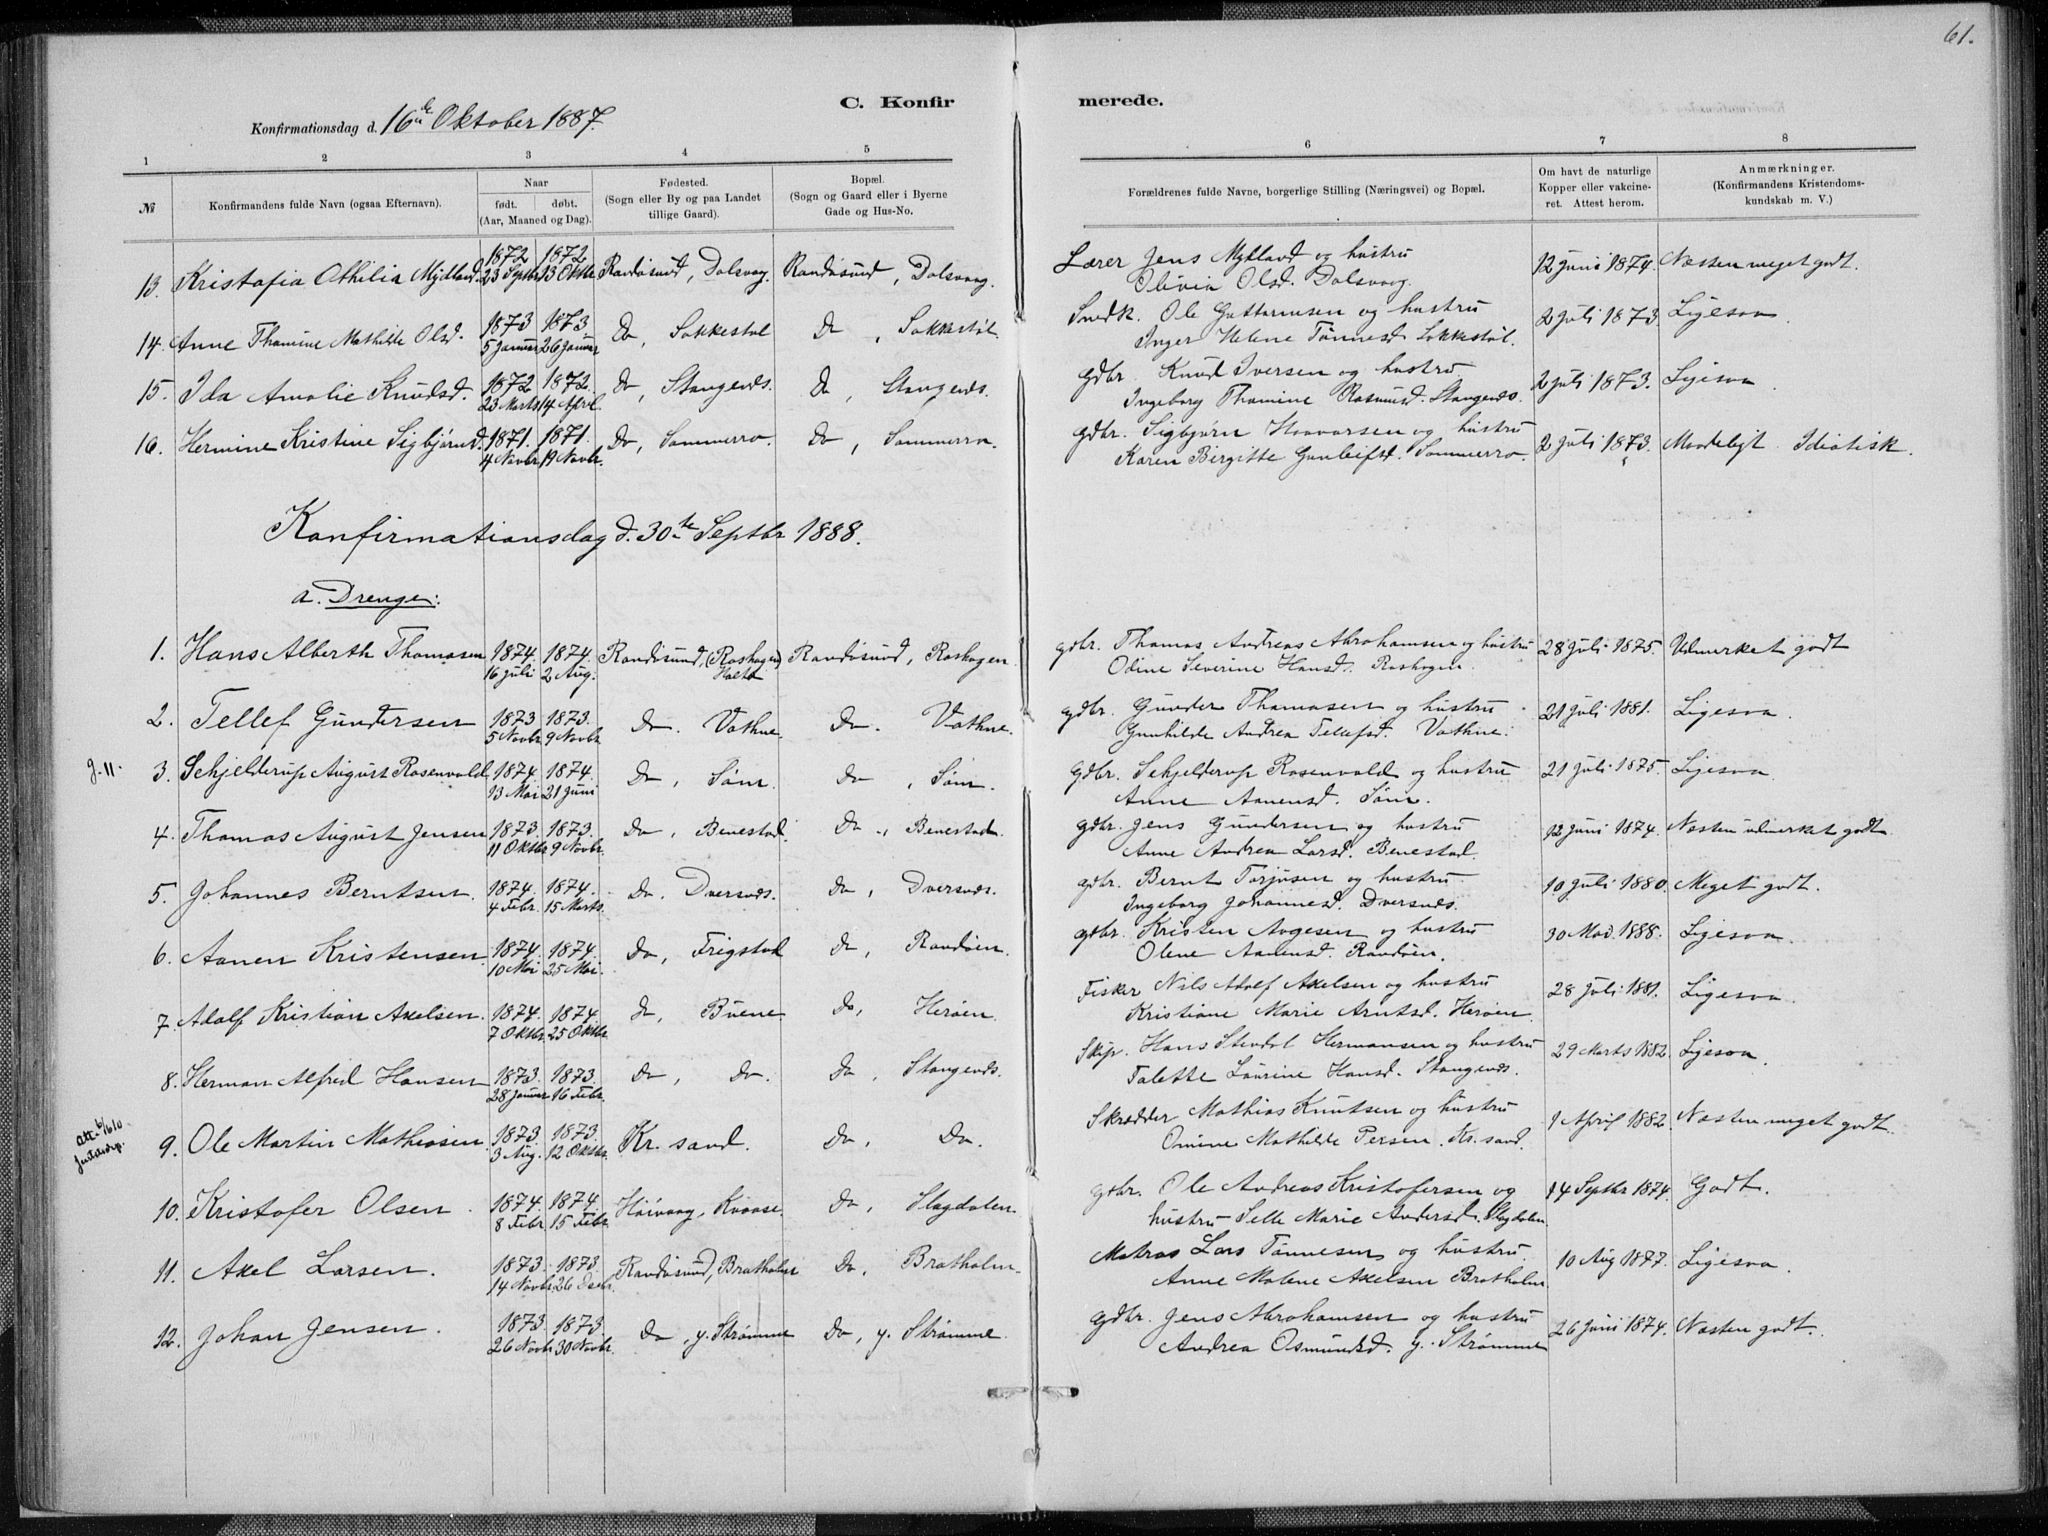 61.
C. Konfirmerede.
Konfirmationsdag d. 16de Oktober 1887.
1 2 3 4 5 6 7 8
№
Konfirmandens fulde Navn (ogsaa Efternavn).
Naar
født. døbt.
(Aar, Maaned og Dag).
Fødested.
(Sogn eller By og paa Landet
tillige Gaard).
Bopæl.
(Sogn og Gaard eller i Byerne
Gade og Hus-No.
Forældrenes fulde Navne, borgerlige Stilling (Næringsvei) og Bopæl.
Om havt de naturlige
Kopper eller vakcine-
ret. Attest herom.
Anmærkninger.
(Konfirmandens Kristendoms-
kundskab m. V.)
13. Kristofia Othilia Mykland. 1872 23 Septbr 1872 13 Oktbr Randøsund, Dolsvaag. Randøsund, Dolsvaag. Lærer Jens Mykland og hustru 12 Juni 1874. Næsten meget godt.
Olivia Olsd. Dolsvaag.
14. Anne Thomine Mathilde Olsd. 1873 5 Januar 1873. 26 Januar Do, Sokkestøl Do, Sokkestøl. Snedk. Ole Guttormsen og hustru 2 Juli 1873 Ligesaa.
Inger Helene Tønnesd Sokkestøl.
15. Ida Amalie Knudsd. 1872 23 Marts 1872. 14 April. Do, Stangenæs. Do, Stangenæs. gdbr. Knud Iversen og hustru 2 Juli 1873. Ligesaa.
Ingeborg Thomine Rasmusd. Stangenæs.
16. Hermine Kristine Sigbjørnsd. 1871. 4 Novbr 1871. 19 Novbr. Do, Sommerro. Do, Sommerro. gdbr. Sigbjørn Haavorsen og hustru 2 Juli 1873. Maadeligt Idiotisk.
Karen Bergitte Gunleifsd. Sommerro.
Konfirmationsdag d. 30te Septbr 1888.
a. Drenge:
1. Hans Alberth Thomasen 1874. 16 Juli 1874. 2 Aug. Randøsund, (Roshagen) Holte Randøsund, Roshagen. gdbr. Thomas Andreas Abrahamsen og hustru 28 Juli 1875. Udmerket godt
Oline Severine Hansd. Roshagen.
2. Tellef Gundersen 1873 5 Novbr 1873. 9 Novbr Do. Vathne. Do. Vathne. gdbr. Gunder Thomasen og hustru 21 Juli 1881. Ligesaa.
Gunhilde Andrea Tellefsd. Vathne.
g. 11. 3. Schjelderup August Rosenvold 1874. 13 Mai 1874. 21 Juni Do, Søm. Do, Søm. gdbr. Schjelderup Rosenvold og hustru 21 Juli 1875. Ligesaa.
Anne Aanensd. Søm.
4. Thomas August Jensen 1873. 11 Oktbr 1873. 9 Novbr. Do, Benestad. Do, Benestad. gdbr. Jens Gundersen og hustru 12 Juni 1874. Næsten udmerket godt
Anne Andrea Larsd. Benestad.
5. Johannes Berntsen. 1874. 4 Febr. 1874. 15 Marts. Do. Dversnæs. Do, Dversnæs. gdbr. Bernt Torjusen og hustru 10 Juli 1880. Meget godt.
Ingeborg Johannesd. Dversnes.
6. Aanen Kristensen. 1874. 10 Mai 1874. 25 Mai. Do, Frigstad Do, Randøen. gdbr. Kristen Aagesen og hustru 30 Mai. 1888. Ligesaa.
Olene Aanensd. Randøen.
7. Adolf Kristian Axelsen. 1874. 7 Oktbr. 1874 25 Oktbr Do, Buene. Do, Herøen. Fisker Nils Adolf Axelsen og hustru 28 Juli 1881. Ligesaa.
Kristiane Marie Arntsd. Herøen.
8. Herman Alfred Hansen 1873. 28 Januar 1873. 16 Febr. Do, Do. Do, Stangenæs. Skip. Hans Stendal Hermansen og hustru 29 Marts 1882. Ligesaa.
Talette Laurine Hansd. Stangenæs.
9. Ole Martin Mathiasen. 1873. 3 Aug. 1873. 12 Oktbr. Kr. sand. Do, Do. Skrædder Mathias Knutsen og hustru 1 April 1882. Næsten meget godt.
Omine Mathilde Persen. Kr. sand.
10. Kristofer Olsen. 1874. 8 Febr 1874. 15 Febr. Høivaag, Kvaase. Do, Slagdalen. gdbr. Ole Andreas Kristofersen og 14 Septbr 1874. Godt.
hustru Selle Marie Andersd. Slagdalen.
11. Axel Larsen. 1873. 14 Novbr. 1873. 26 Decbr. Randøsund, Bratholm Do, Bratholm. Matros Lars Tønnesen og hustru. 10 Aug 1877. Ligesaa.
Anne Malene Axelsen Bratholm.
12. Johan Jensen. 1873. 26 Novbr 1873. 30 Novbr. Do, y. Strømme Do, y. Strømme. gdbr. Jens Abrahamsen og hustru 26 Juni 1874. Næsten godt.
Andrea Osmundsd. y. Strømme